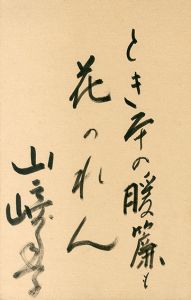 とき平の暖簾も
花のれん
山崎豊子